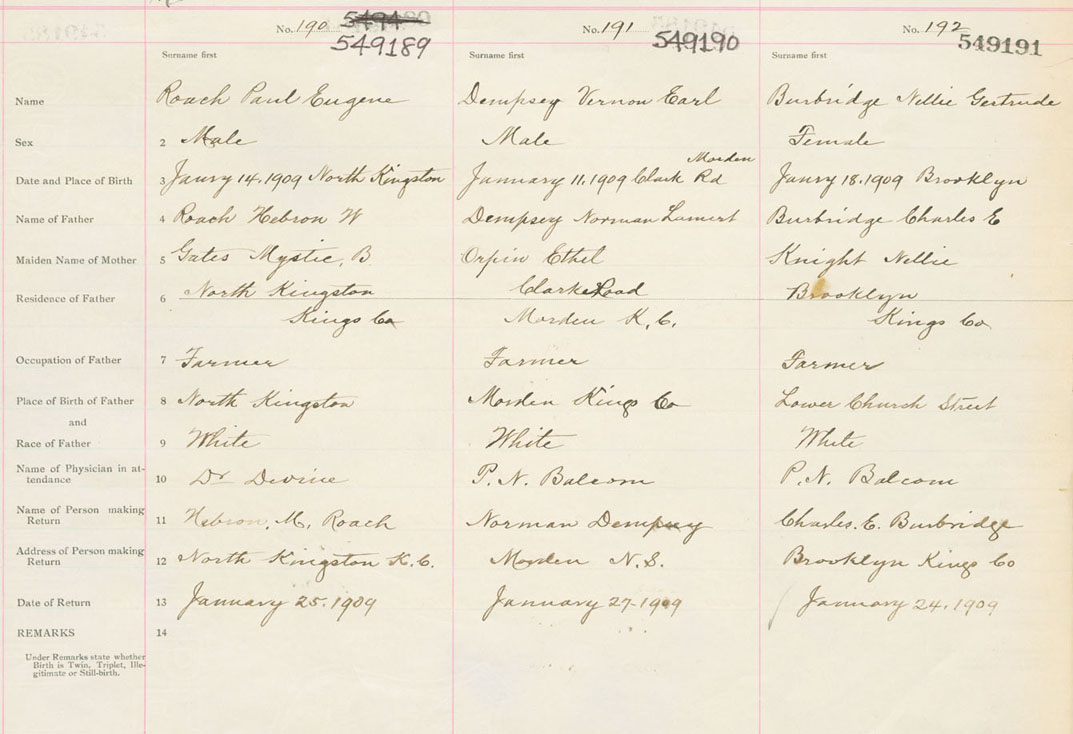 No. 190 5494 80 No. 191 No. 192
549189 549190 549191
Surname first Surname first Surname first
Name Roach Paul Eugene Dempsey Vernon Earl Burbridge Nellie Gertrude
Sex 2 Male Male Female
Morden
Date and Place of Birth 3 Janry 14. 1909 North Kingston January 11. 1909 Clark Rd Janry 18. 1909 Brooklyn
Name of Father 4 Roach Hebron W Dempsey Norman Lamert Burbridge Charles E
Maiden Name of Mother 5 Gates Mystic, B Orpin Ethel Knight Nellie
Residence of Father 6 North Kingston Clarke Road Brooklyn
Kings Co Morden K. C. Kings Co
Occupation of Father 7 Farmer Farmer Farmer
Place of Birth of Father 8 North Kingston Morden Kings Co Lower Church Street
and
Race of Father 9 White White White
Name of Physician in at-
tendance 10 Dr Devine P. N. Balcom P. N. Balcom
Name of Person making
Return 11 Hebron. M, Roach Norman Dempsey Charles. E. Burbridge
Address of Person making
Return 12 North Kingston K. C. Morden N. S. Brooklyn Kings Co
Date of Return 13 January 25. 1909 January 27-1909 January 24. 1909
REMARKS 14
Under Remarks state whether
Birth is Twin, Triplet, Ille-
gitimate or Still-birth.